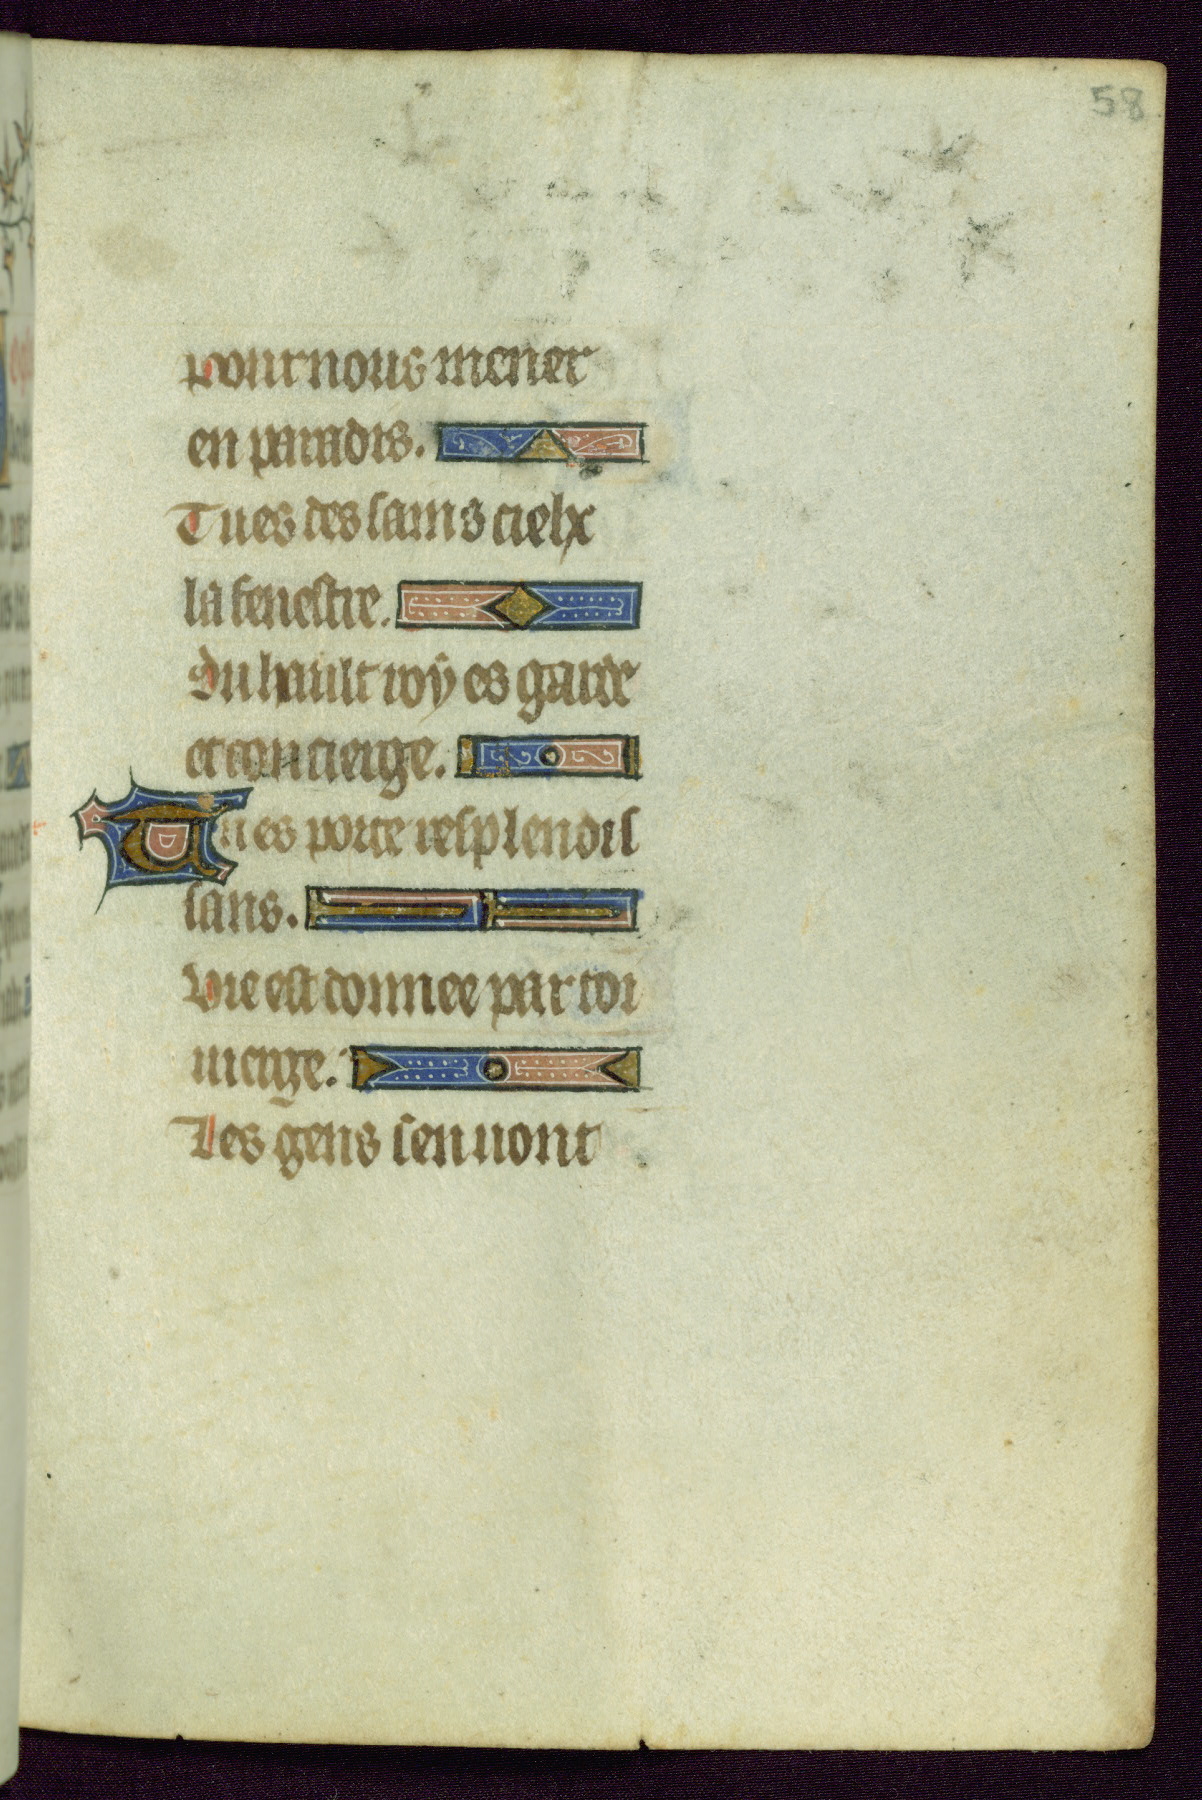 58
pour nous mener
en paradis.
Tu es des sains cielx
la fenestre.
Du hault roy es garde
et concierge.
Tu es porte resplendis
sans.
Vie est donnee par toi
vierge.
Les gens sen vont